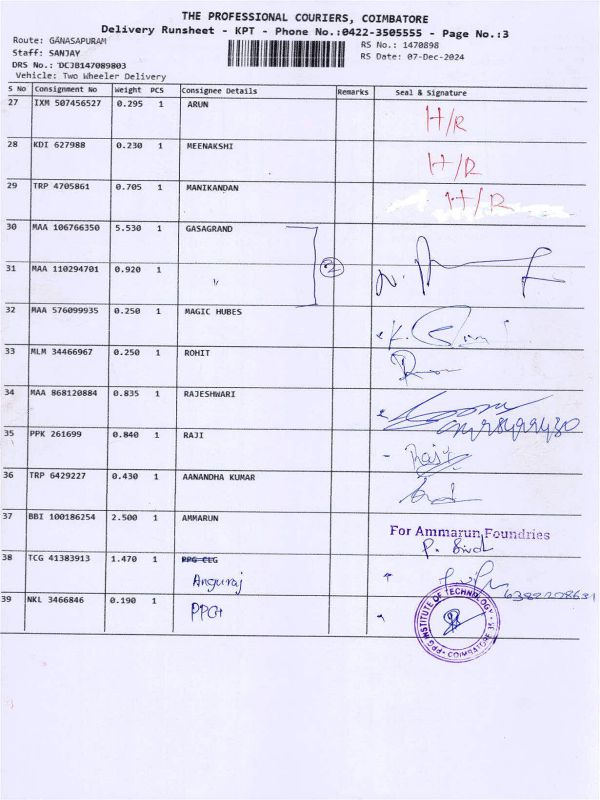 THE PROFESSIONAL COURIERS, COIMBATORE
Delivery Runsheet - KPT - Phone No.:0422-3505555 - Page No.:3
Route: GANASAPURAM
RS No.: 1470898
Staff: SANJAY
RS Date: 07-Dec-2024
DRS No.: DCJB147089803
Vehicle: Two Wheeler Delivery
S No Consignment No Weight PCS Consignee Details Remarks Seal & Signature
27 IXM 507456527 0.295 1 ARUN H/R
28 KDI 627988 0.230 1 MEENAKSHI H/R
29 TRP 4705861 0.705 1 MANIKANDAN H/R
30 MAA 106766350 5.530 1 GASAGRAND
31 MAA 110294701 0.920 1 〃 2
32 MAA 576099935 0.250 1 MAGIC HUBES
33 MLM 34466967 0.250 1 ROHIT
34 MAA 868120884 0.835 1 RAJESHWARI
35 PPK 261699 0.840 1 RAJI Raji
36 TRP 6429227 0.430 1 AANANDHA KUMAR
37 BBI 100186254 2.500 1 AMMARUN For Ammarun Foundries
38 TCG 41383913 1.470 1 PPG CLG
Anguraj
39 NKL 3466846 0.190 1 PPG
PPG INSTITUTE OF TECHNOLOGY
COIMBATORE 35